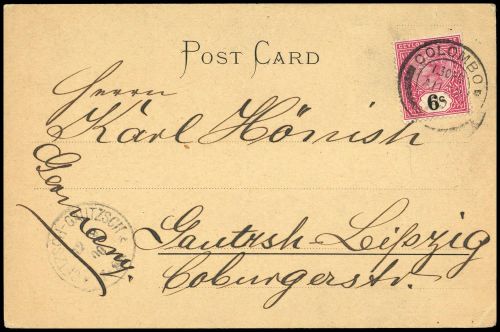 POST CARD
CEYLON
COLOMBO
7.30
6c
Herrn
Karl Hönish
Germany.
Gautzsh-Leipzig
Coburgerstr.
GAUTZSCH